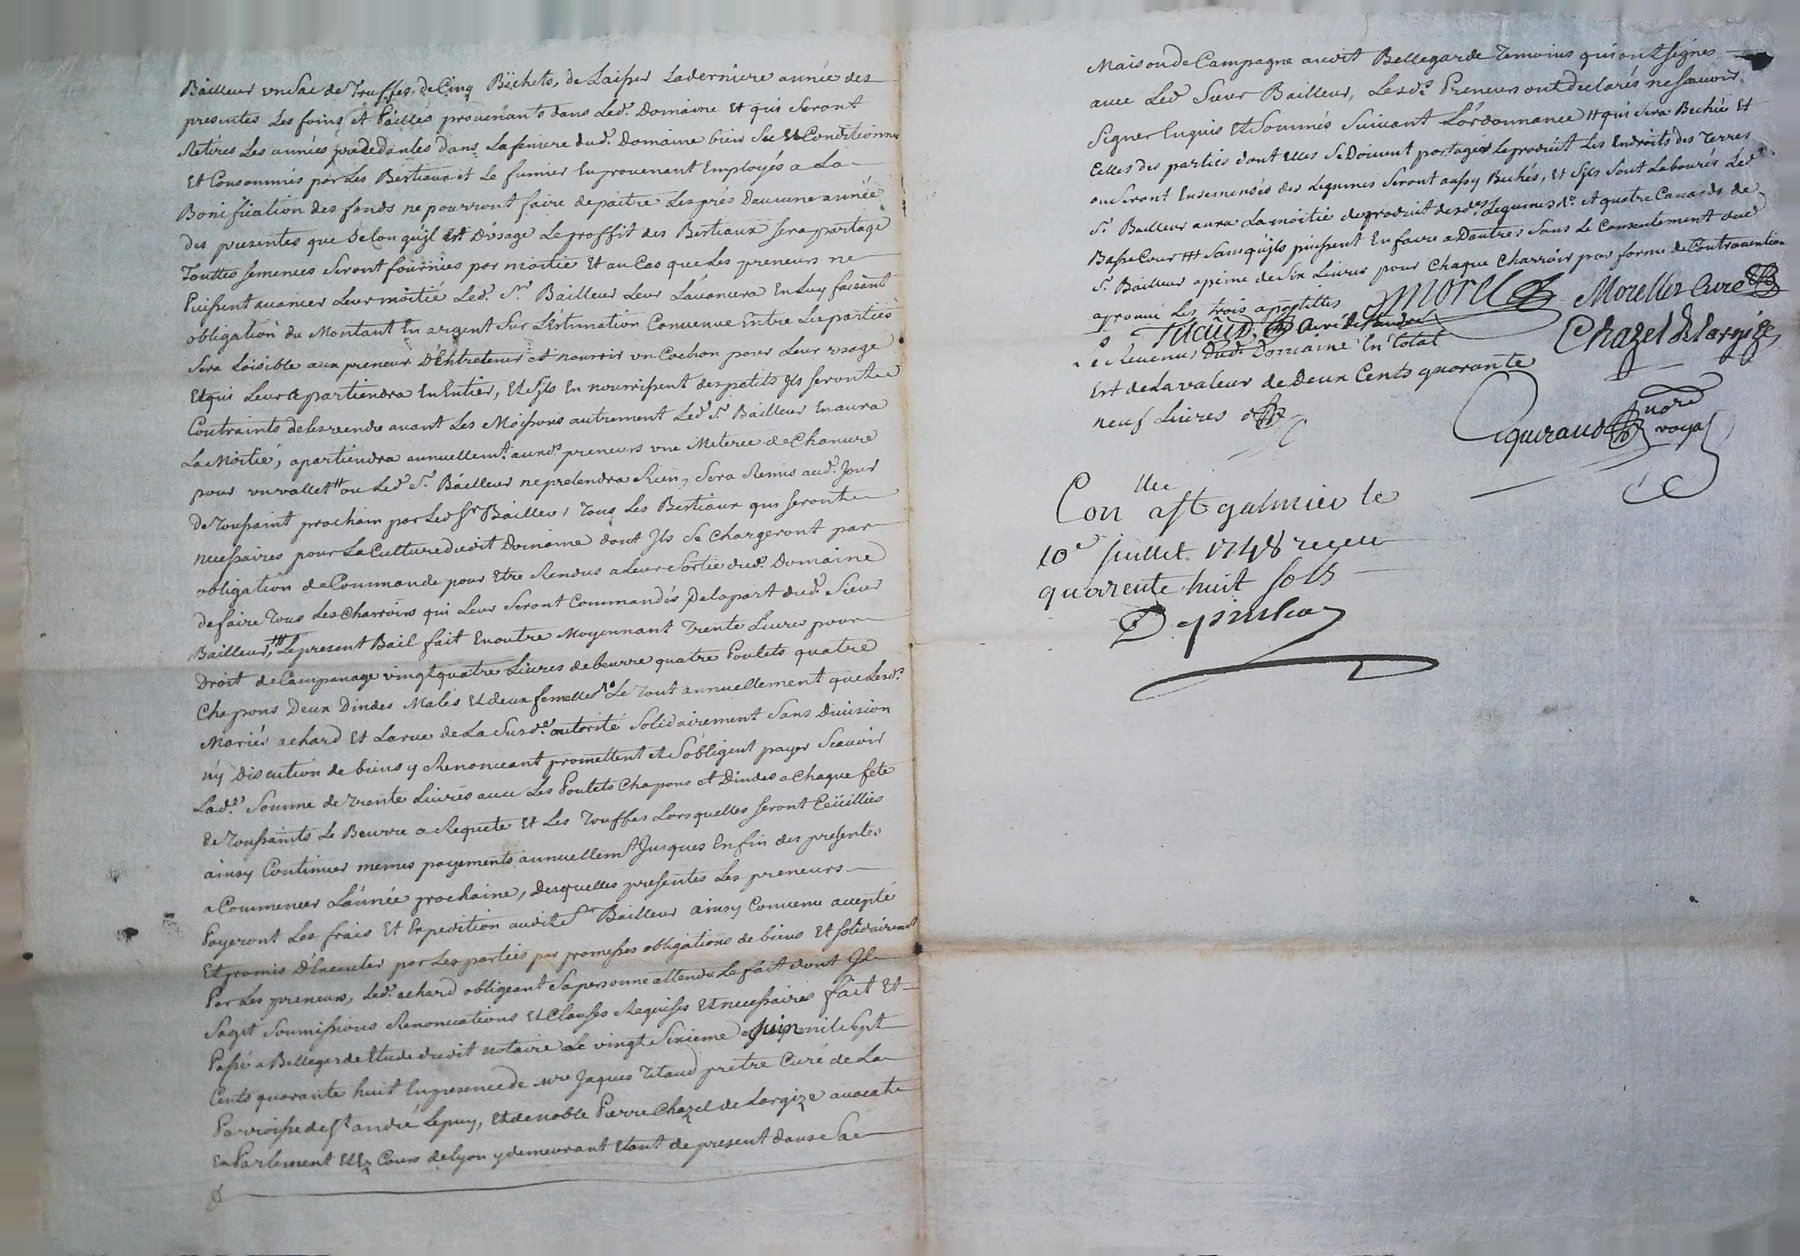 Bailleur un sac de Truffes, de Cinq Bichets, de Laisser La derniere année des
presentes Les foins et Pailles provenants dans Led. Domaine Et qui Seront
Retirés Les années precedantes dans La feniere dud. Domaine bien Sec Et Conditionnés
Et Consommés par Les Bestiaux et Le fumier En provenant Employés a La
Bonification des fonds ne pourront faire depaitre Les prés Daucune année
des presentes que Selon quil Est D'usage Le proffit des Bestiaux Sera partagé
Touttes semences Seront fournies par moitié Et au Cas que Les preneurs ne
Puissent avancer Leur moitié Led. Sr. Bailleur Leur Lavancera En Luy faisant
obligation du Montant En argent Sur L'estimation Convenue Entre Les parties
Sera Loisible aux preneur D'Entretenir et nourrir un Cochon pour Leur usage
Et qui Leur apartiendra En Entier, Et Sils En nourrissent des petits Ils Seront
Contraints de les vendre avant Les Moissons autrement Led. Sr. Bailleur En aura
La Moitié, apartiendra annuellemt. auxd. preneurs une Meterée de Chanvre
pour un vallet ou Led. Sr. Bailleur ne pretendra Rien, Sera Remis aud. Jour
de Toussaint prochain par Led Sr Bailleur Tous Les Bestiaux qui Seront
necessaires pour La Culture dudit Domaine dont Ils Se Chargeront par
obligation de Commande pour Etre Rendus a Leur Sortie dud. Domaine
de faire Tous Les Charrois qui Leur Seront Commandés De la part dud. Sieur
Bailleur, Le present Bail fait En outre Moyennant Trente Livres pour
Droit de Campanage vingt quatre Livres de beurre quatre Poulets quatre
Chapons Deux Dindes Males Et deux femelles Le Tout annuellement que Lesd.
Mariés achard Et Larue de La Susde. autorité Solidairement Sans Division
n'y Discution de biens y Renonceant promettent et Sobligent payer Scavoir
Lade. Somme de Trente Livres avec Les Poulets Chapons et Dindes a Chaque fete
de Toussaints Le Beurre a Requete Et Les Truffes Lorsquelles Seront Ceüillies
ainsy Continuer memes payements annuellemt Jusques En fin des presentes
a Commencer L'année prochaine, Desquelles presentes Les preneurs
Payeront Les frais Et Expedition audit Sr Bailleur ainsy Convenu accepté
Et promis D'Executer par Les parties par promesses obligations de biens Et Solidairement
Par Les preneurs, Led. achard obligeant Sa personne attendu Le fait dont Il
Sagit Soumissions Renonciations Et Clauses Requises Et necessaires fait Et
Passé a Bellegarde Etude dudit notaire Le vingt Sixieme Juin mil Sept
Cents quarante huit En presence de Mre Jaques Titaud pretre Curé de La
Parroisse de St andré Lepuy, Et de noble Pierre Chazel de Largize avocat
En Parlement Et Ez Cours de Lyon y demeurant Etant de present dans Sa
Maison de Campagne audit Bellegarde Temoins qui ont Signés
avec Led Sieur Bailleur, Lesd. Preneurs ont declarés ne Savoir
Signer Enquis Et Sommés Suivant L'ordonnance qui Sera Bechée Et
Celles des parties dont Elles Se Doivent partager Le produit Les Endroits des Terres
ou Seront Ensemensés des Legumes Seront aussy Bechés, Et Sils Sont Labourés Led.
Sr. Bailleur aura La moitié du produit desd. Legumes Et quatre Canards de
Basse Cour Sans quils puissent En faire a Dautres Sans Le Consentement dud.
Sr. Bailleur a peine de Six Livres pour Chaque Charroir par forme de Contravention
aprouvé Les trois apostilles Morel Morellet Curé
Titaud Curé de St andré Chazel De Largize
Le Revenu dud. Domaine En Total
Est de La valeur de Deux Cents quarante
neuf Livres
Gayeraud nore royal
Con lle a St galmier le
10e juillet 1748 receu
quarente huit sols